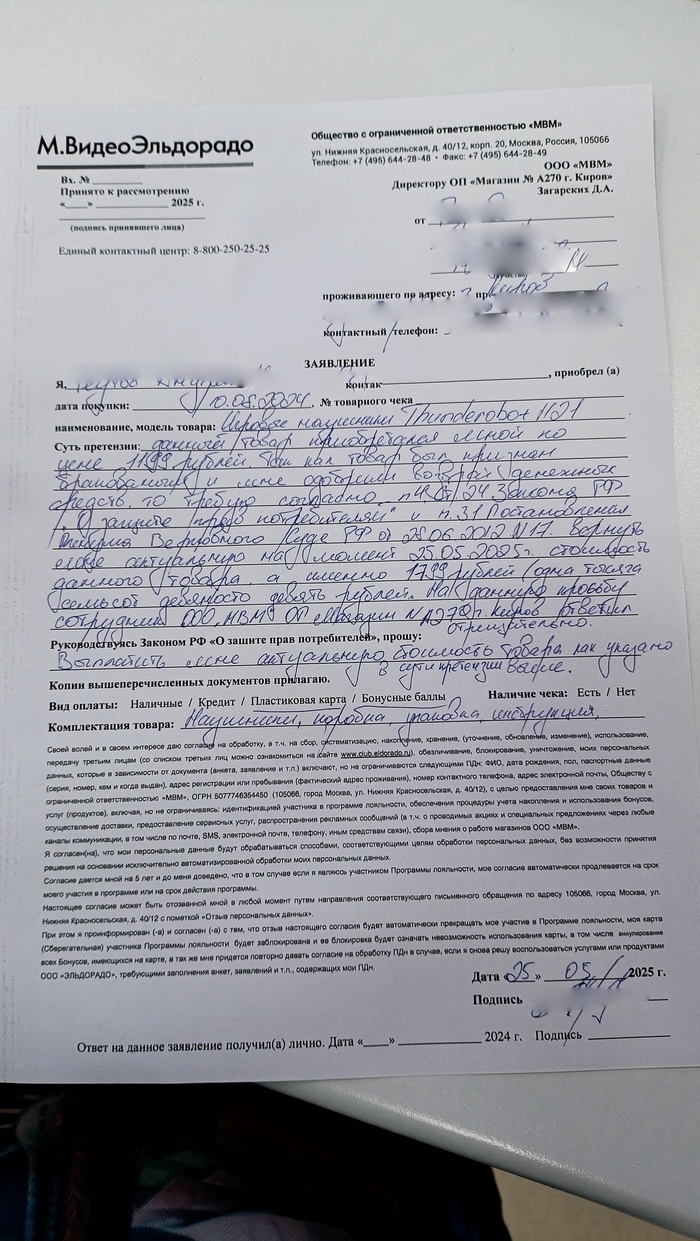 М.ВидеоЭльдорадо
Общество с ограниченной ответственностью «МВМ»
ул. Нижняя Красносельская, д. 40/12, корп. 20, Москва, Россия, 105066
Телефон: +7 (495) 644-28-48 • Факс: +7 (495) 644-28-49
Вх. № ________
Принято к рассмотрению
«____» ____________ 2025 г.
(подпись принявшего лица)
Единый контактный центр: 8-800-250-25-25
ООО «МВМ»
Директору ОП «Магазин № А270 г. Киров»
Загарских Д.А.
от
проживающего по адресу: Киров
контактный телефон:
ЗАЯВЛЕНИЕ
Я, , приобрел (а)
дата покупки: 10.08.2024, № товарного чека
наименование, модель товара: Игровые наушники Thunderobot H21
Суть претензии: данный товар приобретался мной по
цене 1199 рублей. Так как товар был признан
бракованным и мне одобрили возврат денежных
средств, то требую согласно 24 Закона РФ
"О защите прав потребителей" и п.31 Постановления
Пленума Верховного Суда РФ от 28.06.2012 N17. Вернуть
мне актуальную на момент 25.05.2025г. стоимость
данного товара, а именно 1799 рублей (одна тысяча
семьсот девяносто девять рублей. На данную просьбу
сотрудник ООО "МВМ" ОП Магазин N А270 г. Киров ответил
отрицательно.
Руководствуясь Законом РФ «О защите прав потребителей», прошу:
Выплатить мне актуальную стоимость товара как указано
в сути претензии выше.
Копии вышеперечисленных документов прилагаю.
Вид оплаты: Наличные / Кредит / Пластиковая карта / Бонусные баллы Наличие чека: Есть / Нет
Комплектация товара: Наушники, коробка, упаковка, инструкция,
Своей волей и в своем интересе даю согласие на обработку, в т.ч. на сбор, систематизацию, накопление, хранение, (уточнение, обновление, изменение), использование,
передачу третьим лицам (со списком третьих лиц можно ознакомиться на сайте www.club.eldorado.ru), обезличивание, блокирование, уничтожение, моих персональных
данных, которые в зависимости от документа (анкета, заявление и т.п.) включают, но не ограничиваются следующими ПДн: ФИО, дата рождения, пол, паспортные данные
(серия, номер, кем и когда выдан), адрес регистрации или пребывания (фактический адрес проживания), номер контактного телефона, адрес электронной почты, Обществу с
ограниченной ответственностью «МВМ», ОГРН 5077746354450 (105066, город Москва, ул. Нижняя Красносельская, д. 40/12), с целью предоставления мне своих товаров и
услуг (продуктов), включая, но не ограничиваясь: идентификацией участника в программе лояльности, обеспечения процедуры учета накопления и использования бонусов,
осуществление доставки, предоставление сервисных услуг, распространения рекламных сообщений (в т.ч. о проводимых акциях и специальных предложениях через любые
каналы коммуникации, в том числе по почте, SMS, электронной почте, телефону, иным средствам связи), сбора мнения о работе магазинов ООО «МВМ».
Я согласен(на), что мои персональные данные будут обрабатываться способами, соответствующими целям обработки персональных данных, без возможности принятия
решения на основании исключительно автоматизированной обработки моих персональных данных.
Согласие дается мной на 5 лет и до меня доведено, что в том случае если я являюсь участником Программы лояльности, мое согласие автоматически продлевается на срок
моего участия в программе или на срок действия программы.
Настоящее согласие может быть отозванной мной в любой момент путем направления соответствующего письменного обращения по адресу 105066, город Москва, ул.
Нижняя Красносельская, д. 40/12 с пометкой «Отзыв персональных данных».
При этом я проинформирован (-а) и согласен (-а) с тем, что отзыв настоящего согласия будет автоматически прекращать мое участие в Программе лояльности, моя карта
(Сберегательная) участника Программы лояльности будет заблокирована и ее блокировка будет означать невозможность использования карты, в том числе аннулирование
всех Бонусов, имеющихся на карте, а так же мне придется повторно давать согласие на обработку ПДн в случае, если я снова решу воспользоваться услугами или продуктами
ООО «ЭЛЬДОРАДО», требующими заполнения анкет, заявлений и т.п., содержащих мои ПДн.
Дата «25» 05 2025 г.
Подпись
Ответ на данное заявление получил(а) лично. Дата «____» ____________ 2024 г. Подпись ____________